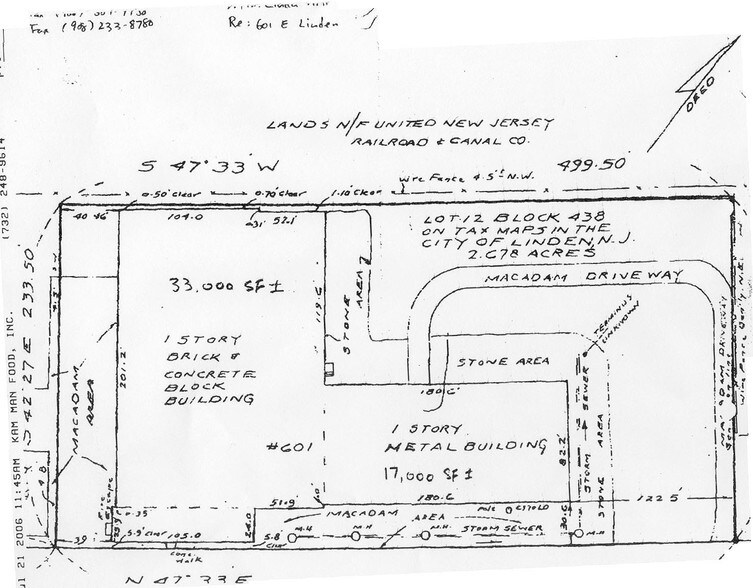 Fax (908) 233-8780
Re: 601 E Linden
LANDS N/F UNITED NEW JERSEY
RAILROAD & CANAL CO.
DEED
S 47° 33' W
499.50'
Wire Fence 4.5± N.W.
0.50' Clear
0.70' Clear
1.10' Clear
40.46'
104.0
52.1'
LOT 12 BLOCK 438
ON TAX MAPS IN THE
CITY OF LINDEN, N.J.
2.678 ACRES
MACADAM DRIVEWAY
33,000 SF ±
119.6
STONE
AREA
1 STORY
BRICK &
CONCRETE
BLOCK
BUILDING
201.2
MACADAM
AREA
STONE AREA
TERMINUS
UNKNOWN
180.6'
#601
1 STORY
METAL BUILDING
17,000 SF ±
82.2'
STORM SEWER
STONE AREA
MACADAM DRIVEWAY
51.9'
180.6
122.5'
24.0
30.6
MACADAM AREA
STORM SEWER
M.H
M.H
M.H.
M.H
Fire
Escape
5.9' Clear
105.0
5.8'
Clear
Conc.
Walk
N 47° 33 E
S 42° 27 E 233.50'
(732) 248-9614
KAM MAN FOOD, INC.
21 2006 11:45AM